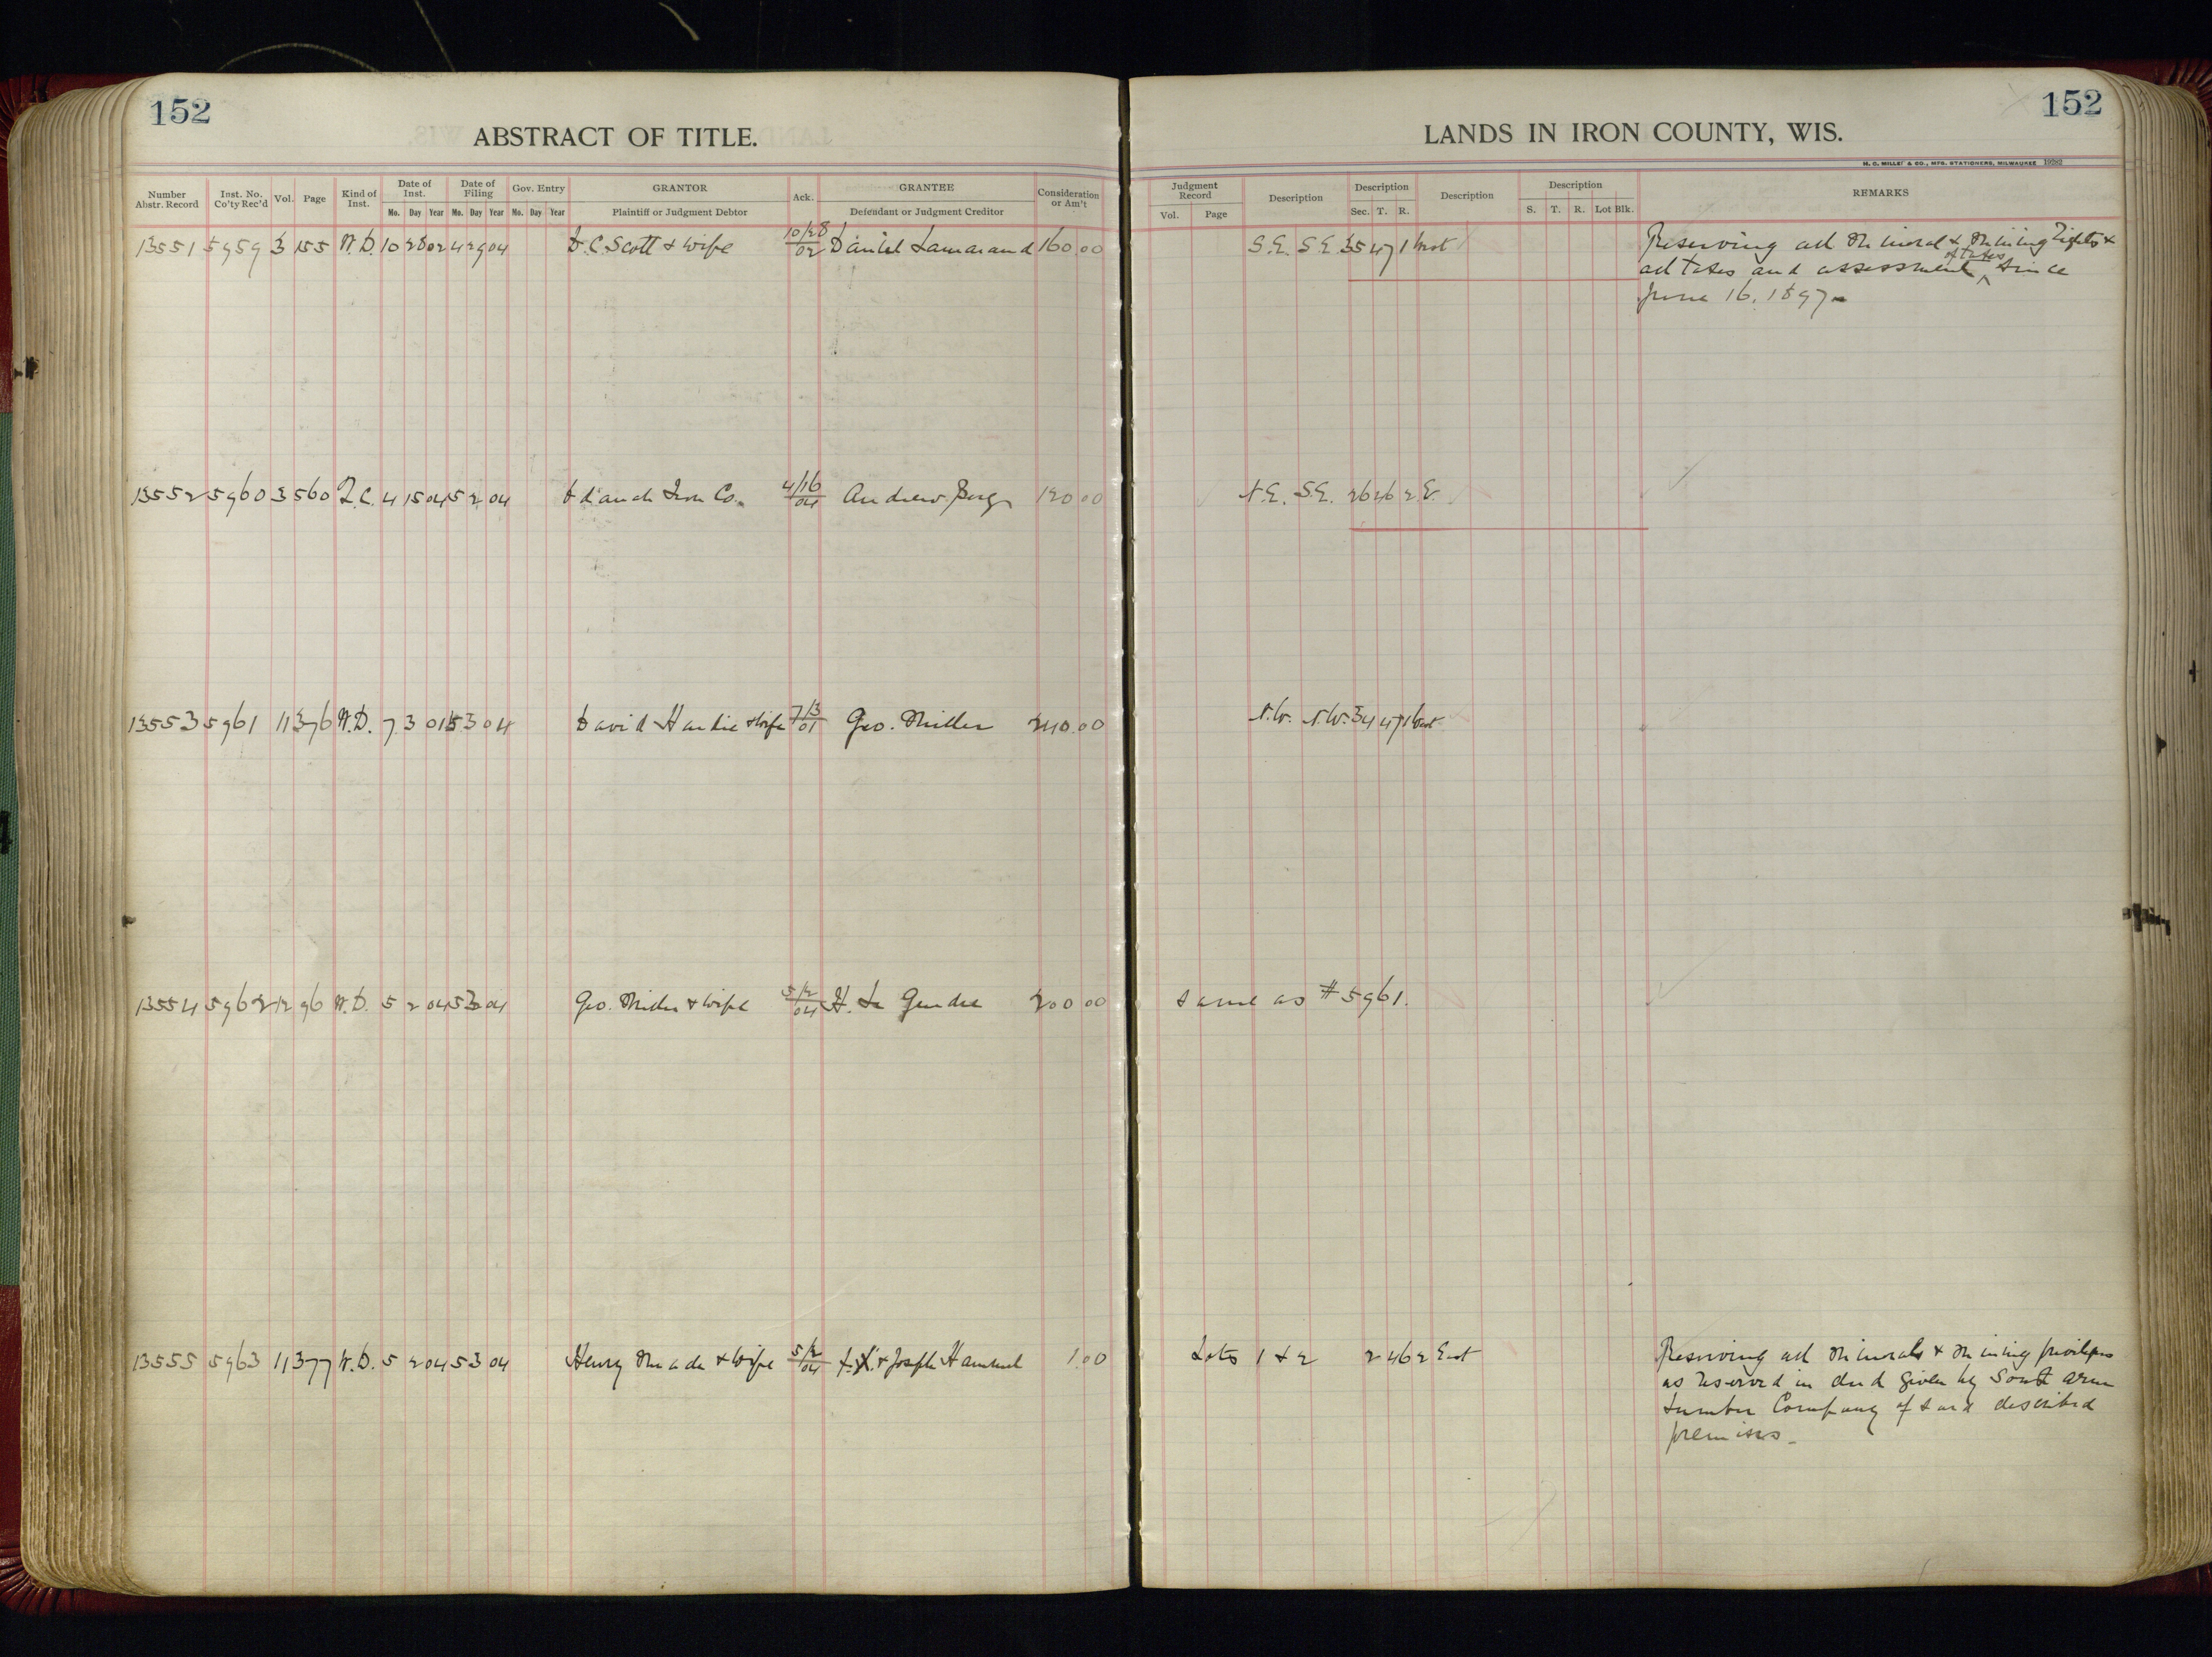 152
ABSTRACT OF TITLE.
Number Abstr. Record Inst. No. Co'ty Rec'd Vol. Page Kind of Inst. Date of Inst. Date of Filing Gov. Entry GRANTOR Ack. GRANTEE Consideration or Am't
Mo. Day Year Mo. Day Year Mo. Day Year Plaintiff or Judgment Debtor Defendant or Judgment Creditor
13551 5959 3 155 W.D. 10 28 02 4 29 04 D.C. Scott & Wife 10/28 02 Daniel 160.00
13552 5960 3 560 4 15 04 5 2 04 Iron Co. 4/16 04 Andrew Berg 120 00
13553 5961 11 376 W.D. 7 3 01 5 3 04 David & Wife 7/3 01 Geo. Miller 240.00
13554 5962 12 96 W.D. 5 2 04 5 3 04 Geo. Miller & Wife 5/2 04 H. La Gendre 200 00
13555 5963 11 377 W.D. 5 2 04 5 3 04 Henry Meade & Wife 5/2 04 & Joseph Hammel 1.00
152
LANDS IN IRON COUNTY, WIS.
H. C. MILLER & CO., MFG. STATIONERS, MILWAUKEE 19282
Judgment Record Description Description Description Description REMARKS
Vol. Page Sec. T. R. S. T. R. Lot Blk.
S.E. S.E. 35 47 1 West Reserving all Mineral & Mining Rights &
all taxes and assessment of taxes since
June 16, 1897
N.E. S.E. 26 46 2 E.
N.W. N.W. 34 47 1 West
Same as #5961.
Lots 1 & 2 2 46 2 East Reserving all Minerals & Mining privileges
as reserved in deed given by South Arm
Lumber Company of said described
premises